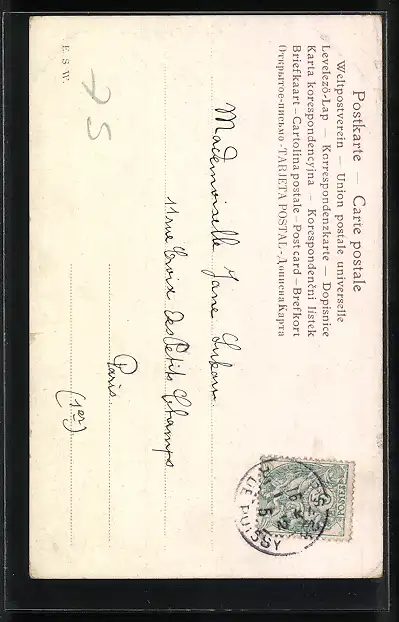 Postkarte — Carte postale
Weltpostverein — Union postale universelle
Levelező-Lap — Korrespondenzkarte — Dopisnice
Karta korespondencyjna — Korespondenční lístek
Briefkaart – Cartolina postale – Post card – Brefkort
Открытое-письмо - TARJETA POSTAL - Дописна Карта
Mademoiselle Jane
11 rue Croix des Petits Champs
Paris
(1er)
75
E. S. W.
POSTES
DE PUISSY